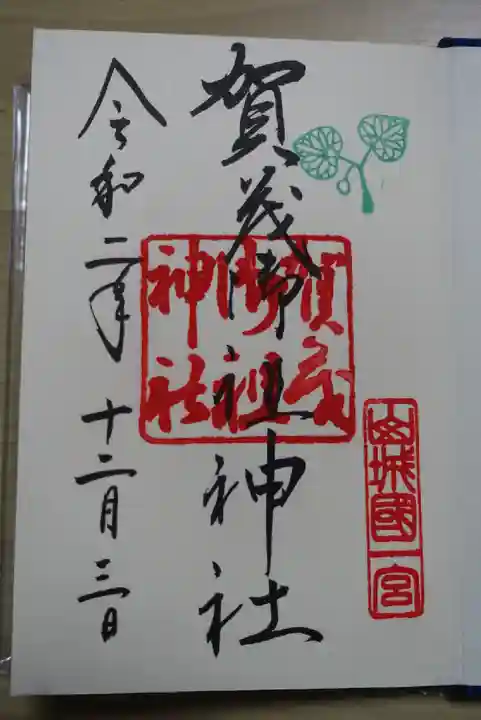 山城國一宮
賀茂御祖神社
賀茂
御祖
神社
令和二年十二月三日